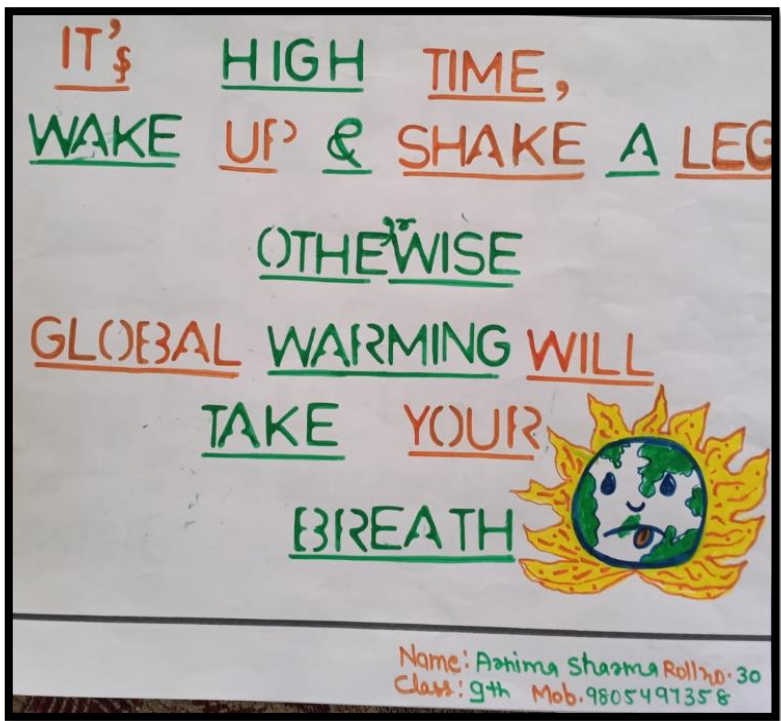 IT'S HIGH TIME,
WAKE UP & SHAKE A LEG
OTHE'r'WISE
GLOBAL WARMING WILL
TAKE YOUR
BREATH
Name: Arnima Sharma Roll no. 30
Class: 9th Mob. 9805497358